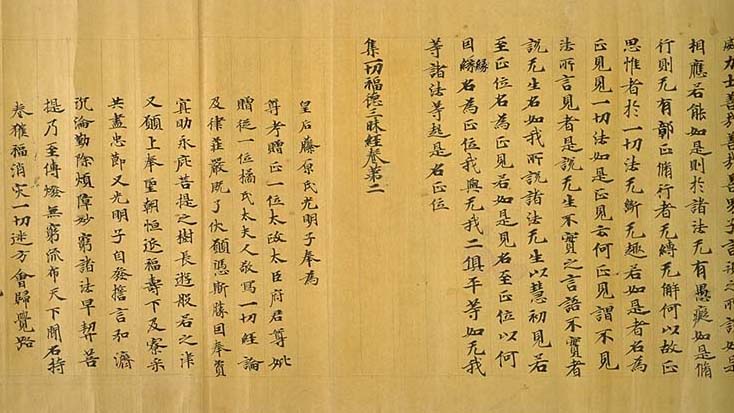 相應若能如是則於諸法无有愚癡如是脩
行則无有鄣正脩行者无縛无解何以故正
思惟者於一切法无斷无趣若如是者名為
正見見一切法如是正見云何正見謂不見
法所言見者是說无生不實之言語不實者
說无生名如我所說諸法无生以慧初見若
至正位名為正見若如是見名至正位以何
因緣名為正位我與无我二俱平等如无我
等諸法等起是名正位
集一切福德三昧經卷第二
皇后藤原氏光明子奉為
尊考贈正一位太政太臣府君尊妣
贈從一位橘氏太夫人敬寫一切經論
及律莊嚴既了伏願憑斯勝因奉資
冥助永庇菩提之樹長遊般若之津
又願上奉聖朝恒延福壽下及寮采
共盡忠節又光明子自發擔言和濟
沉淪勤除煩障妙窮諸法早契菩
提乃至傳燈無窮流布天下聞名持
卷獲福消灾一切迷方會歸覺路